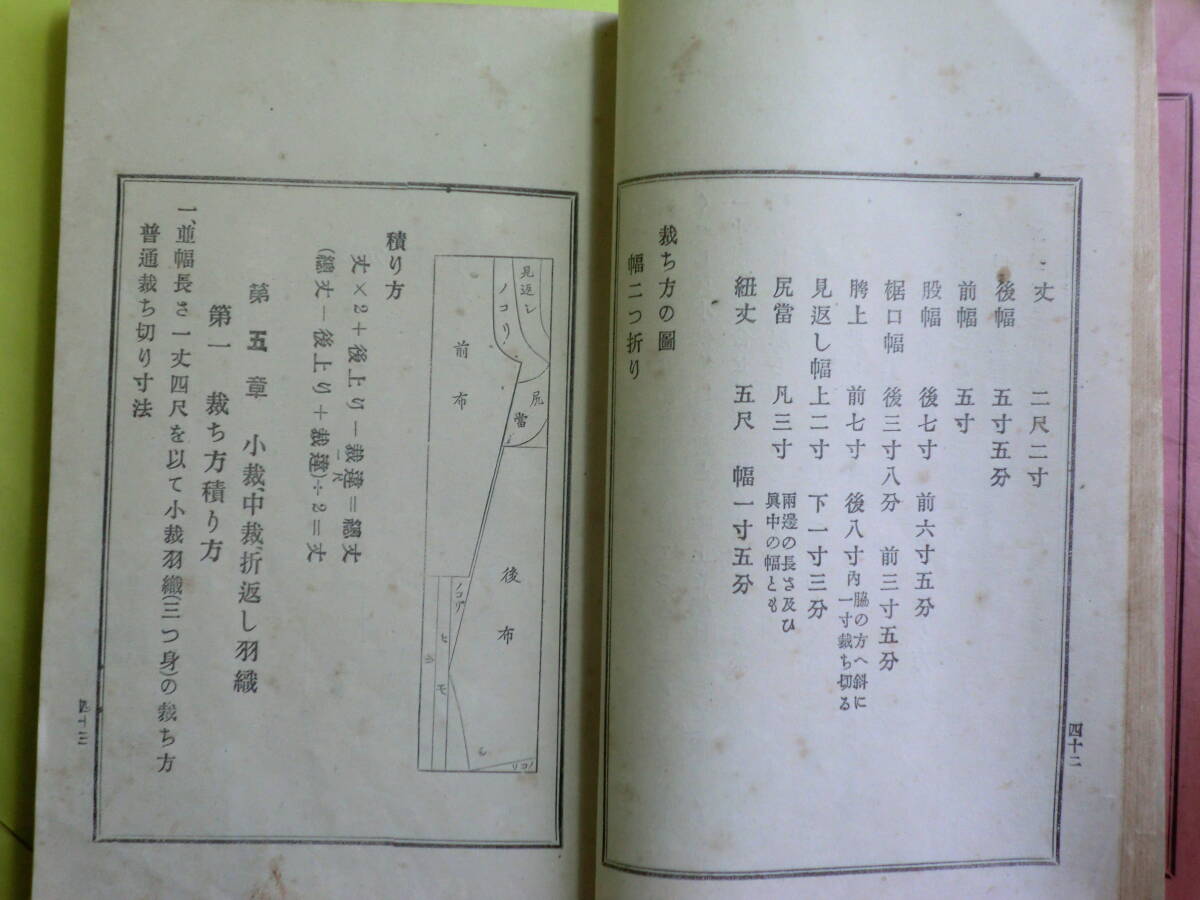 丈 二尺二寸
後幅 五寸五分
前幅 五寸
股幅 後七寸 前六寸五分
裾口幅 後三寸八分 前三寸五分
胯上 前七寸 後八寸内一寸裁ち切る脇の方へ斜に
見返し幅 上二寸 下一寸三分
尻當 凡三寸 兩邊の長さ及び眞中の幅とも
紐丈 五尺 幅一寸五分
裁ち方の圖
幅二つ折り
四十二
見返し
ノコリ
前布
尻當
後布
ノコリ
ヒモ
ノコリ
積り方
丈×2+後上り−裁違一尺=總丈
(總丈−後上り+裁違)÷2=丈
第五章 小裁、中裁、折返し羽織
第一 裁ち方積り方
一、並幅長さ一丈四尺を以て小裁羽織(三つ身)の裁ち方
普通裁ち切り寸法
四十三